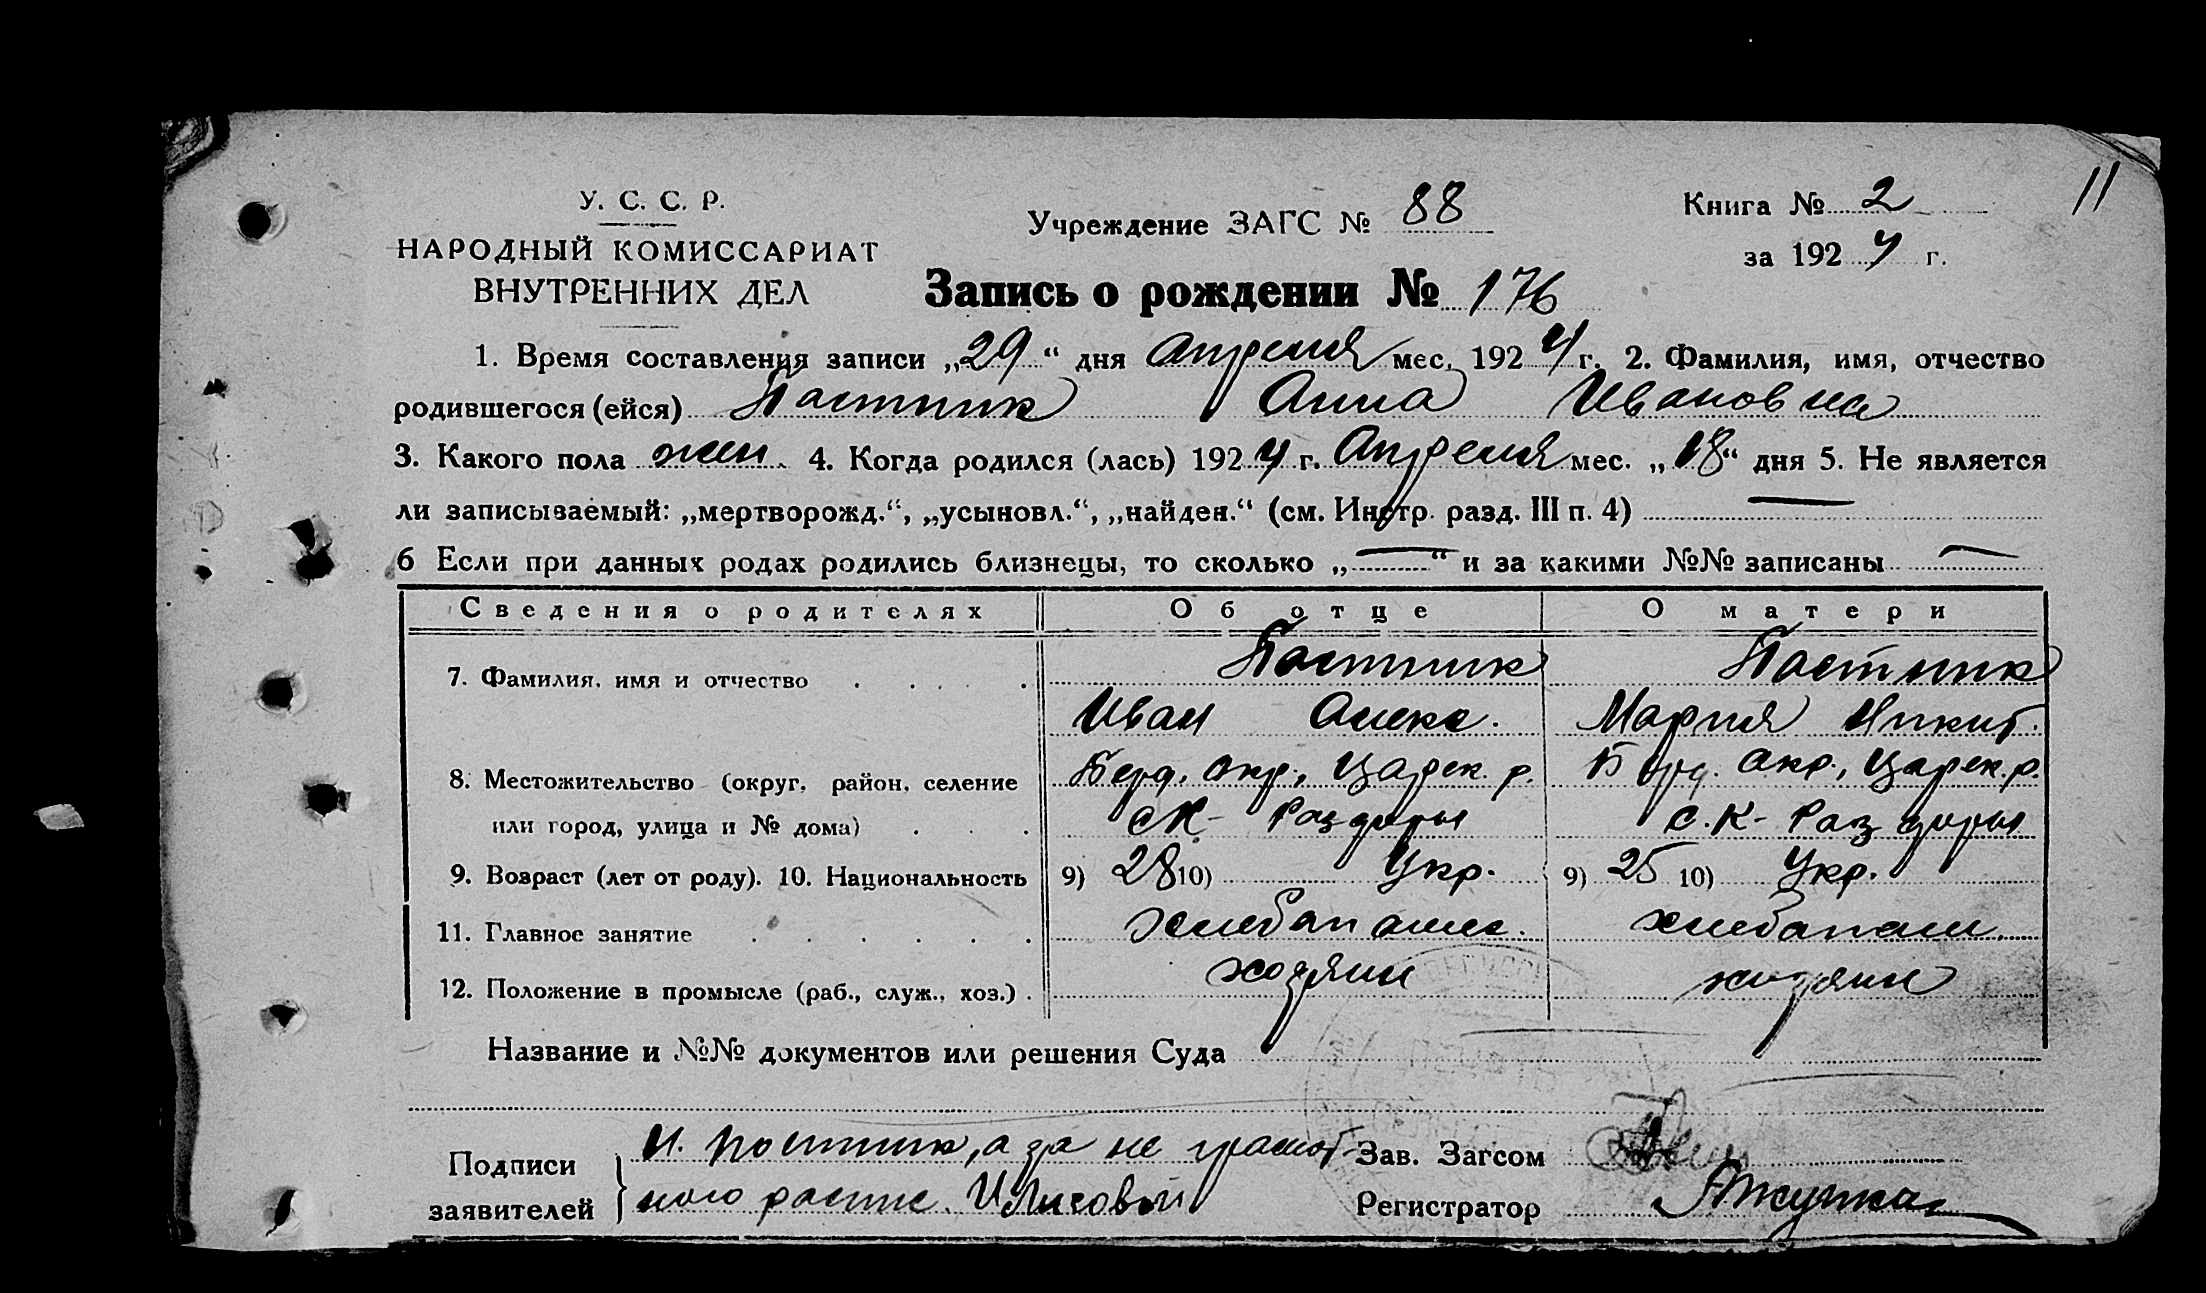 11
У. С. С. Р.
НАРОДНЫЙ КОМИССАРИАТ
ВНУТРЕННИХ ДЕЛ
Учреждение ЗАГС № 88
Книга № 2
за 1924 г.
Запись о рождении № 176
1. Время составления записи „29“ дня Апреля мес. 1924 г. 2. Фамилия, имя, отчество
родившегося (ейся) Постник Анна Ивановна
3. Какого пола жен. 4. Когда родился (лась) 1924 г. Апреля мес. „18“ дня 5. Не является
ли записываемый: „мертворожд.“, „усыновл.“, „найден.“ (см. Инстр. разд. III п. 4) —
6 Если при данных родах родились близнецы, то сколько „—“ и за какими №№ записаны —
Сведения о родителях Об отце О матери
7. Фамилия, имя и отчество Постник Постник
Иван Алекс. Мария Никит.
8. Местожительство (округ, район, селение Берд. окр., Царек. р. Берд. окр., Царек. р.
или город, улица и № дома) с К- Раздоры с. К- Раздоры
9. Возраст (лет от роду). 10. Национальность 9) 28 10) Укр. 9) 25 10) Укр.
11. Главное занятие хлебопашес. хлебопаш.
12. Положение в промысле (раб., служ., хоз.) хозяин хозяин
Название и №№ документов или решения Суда
Подписи заявителей
И. Постник, а за не грамот-
ного распис. И Лисовый
Зав. Загсом
Регистратор